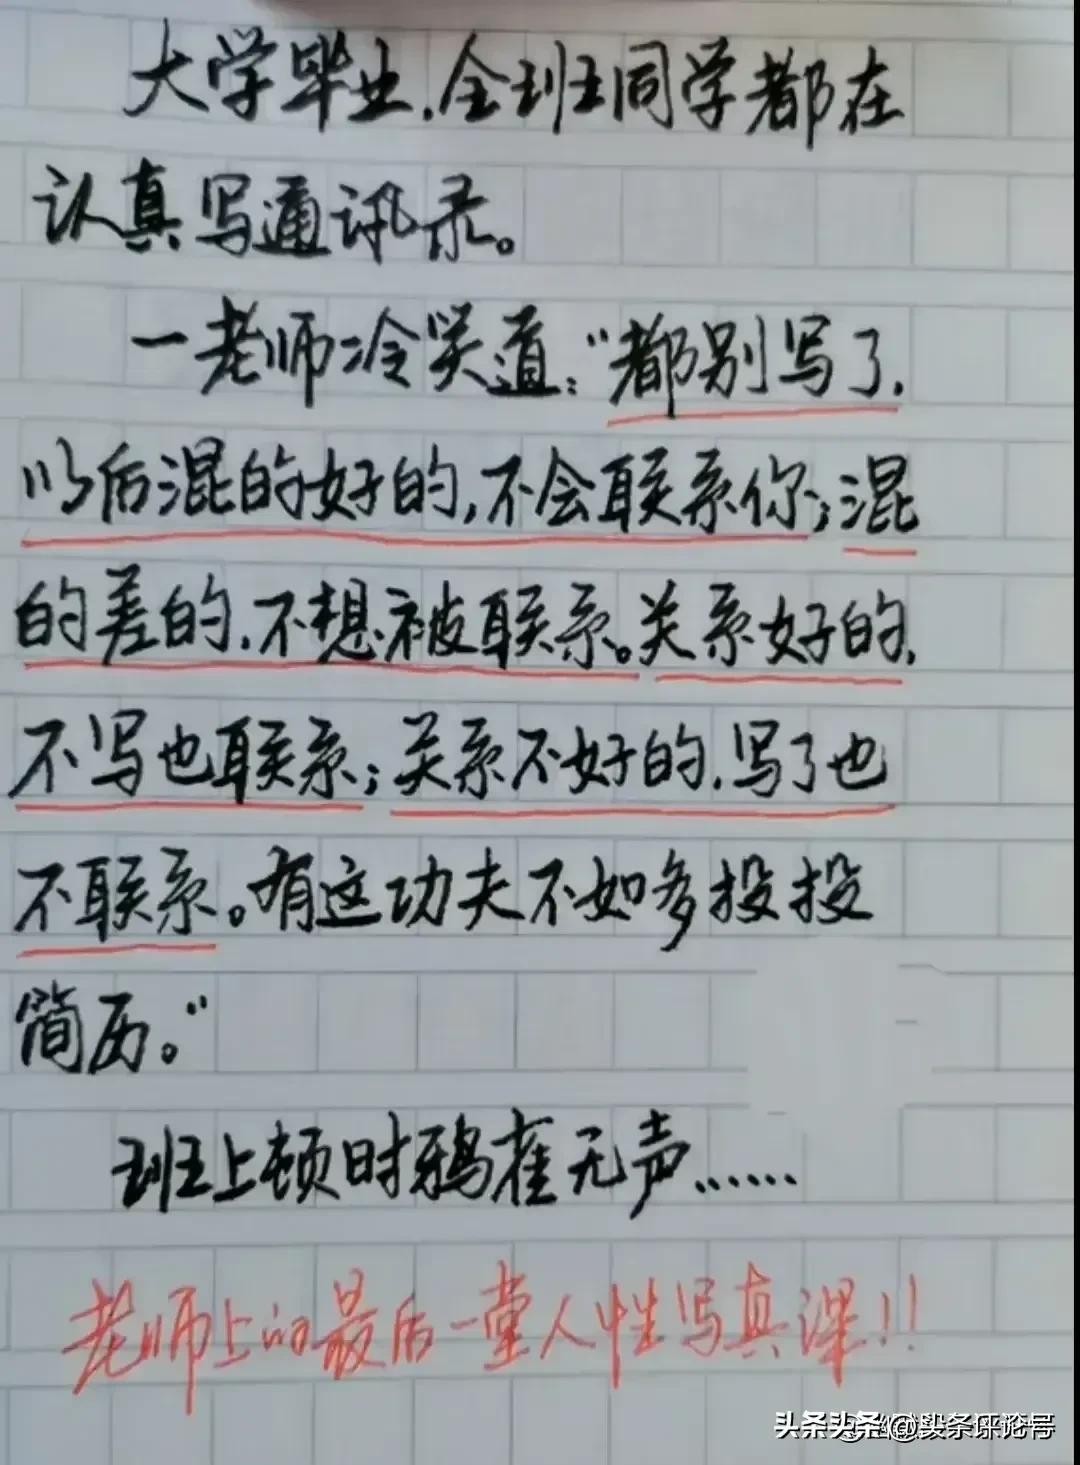 大学毕业，全班同学都在
认真写通讯录。
一老师冷笑道："都别写了，
以后混的好的，不会联系你；混
的差的，不想被联系。关系好的，
不写也联系；关系不好的，写了也
不联系。有这功夫不如多投投
简历。"
班上顿时鸦雀无声……
老师上的最后一堂人性写真课！！
头条头条@头条评论号